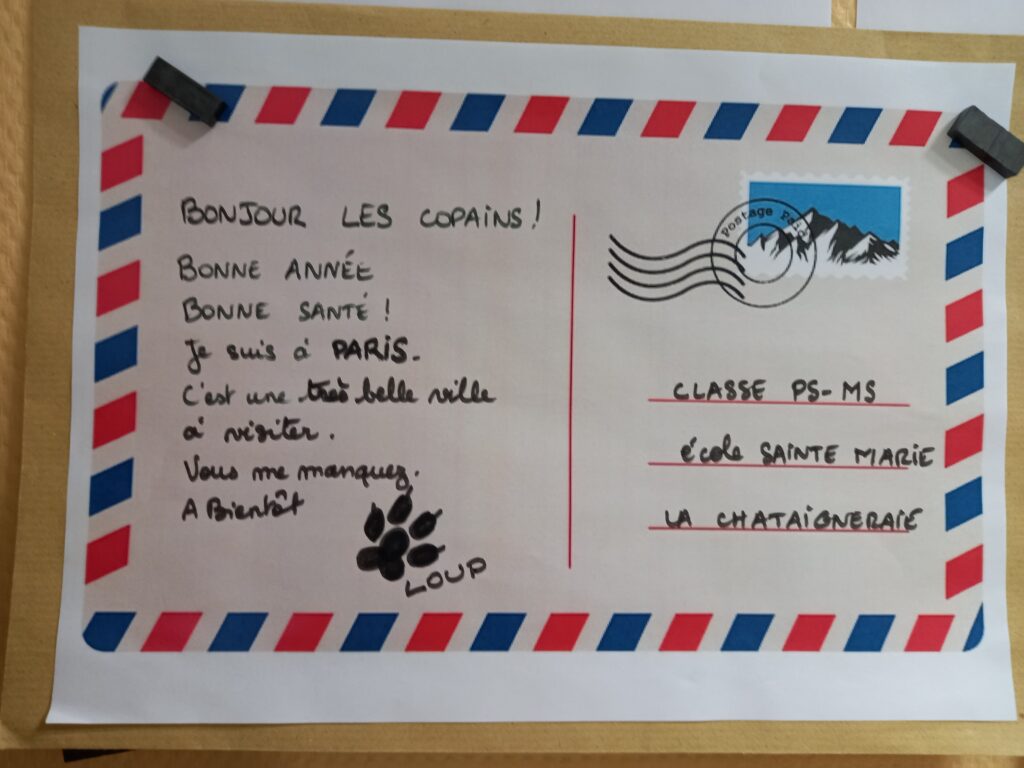 BONJOUR LES COPAINS !
BONNE ANNÉE
BONNE SANTÉ !
Je suis à PARIS.
C'est une très belle ville
à visiter.
Vous me manquez.
A Bientôt
LOUP
Postage
CLASSE PS-MS
école SAINTE MARIE
LA CHATAIGNERAIE